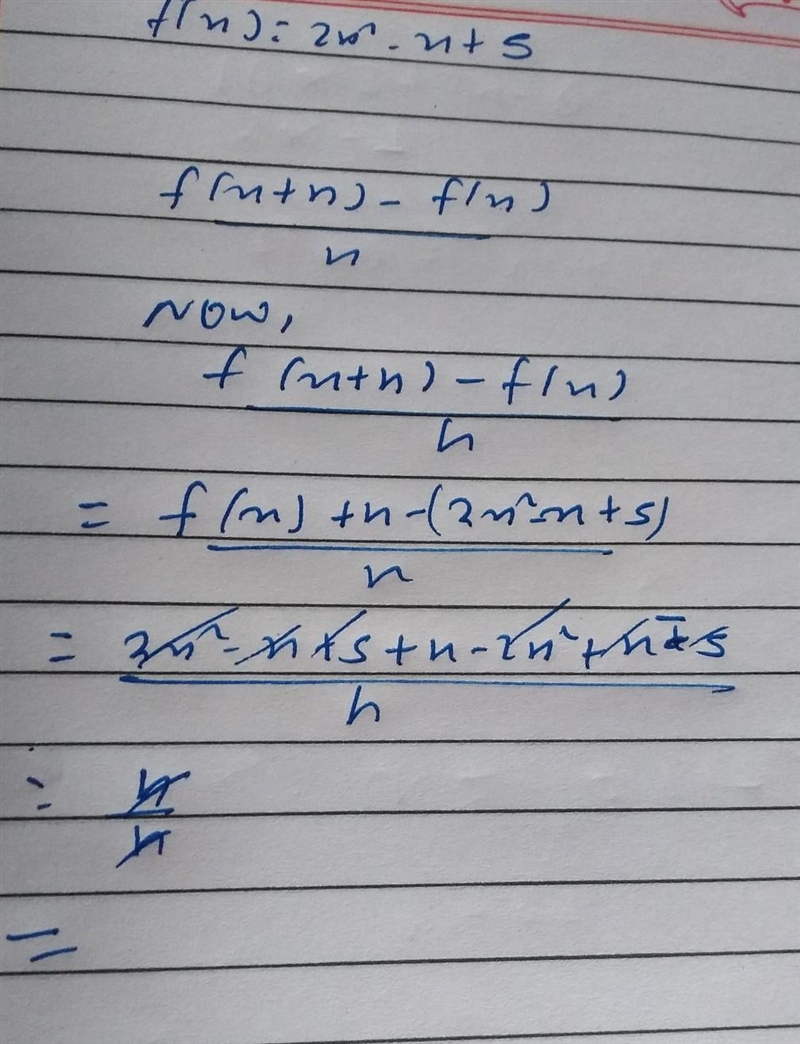 f(x) = 2x² - x + 5
f(x+h) - f(x)
h
Now,
f (x+h) - f(x)
h
= f(x) + h - (2x² - x + 5)
h
= 2x² - x + 5 + h - 2x² + x - 5
h
= h
h
=